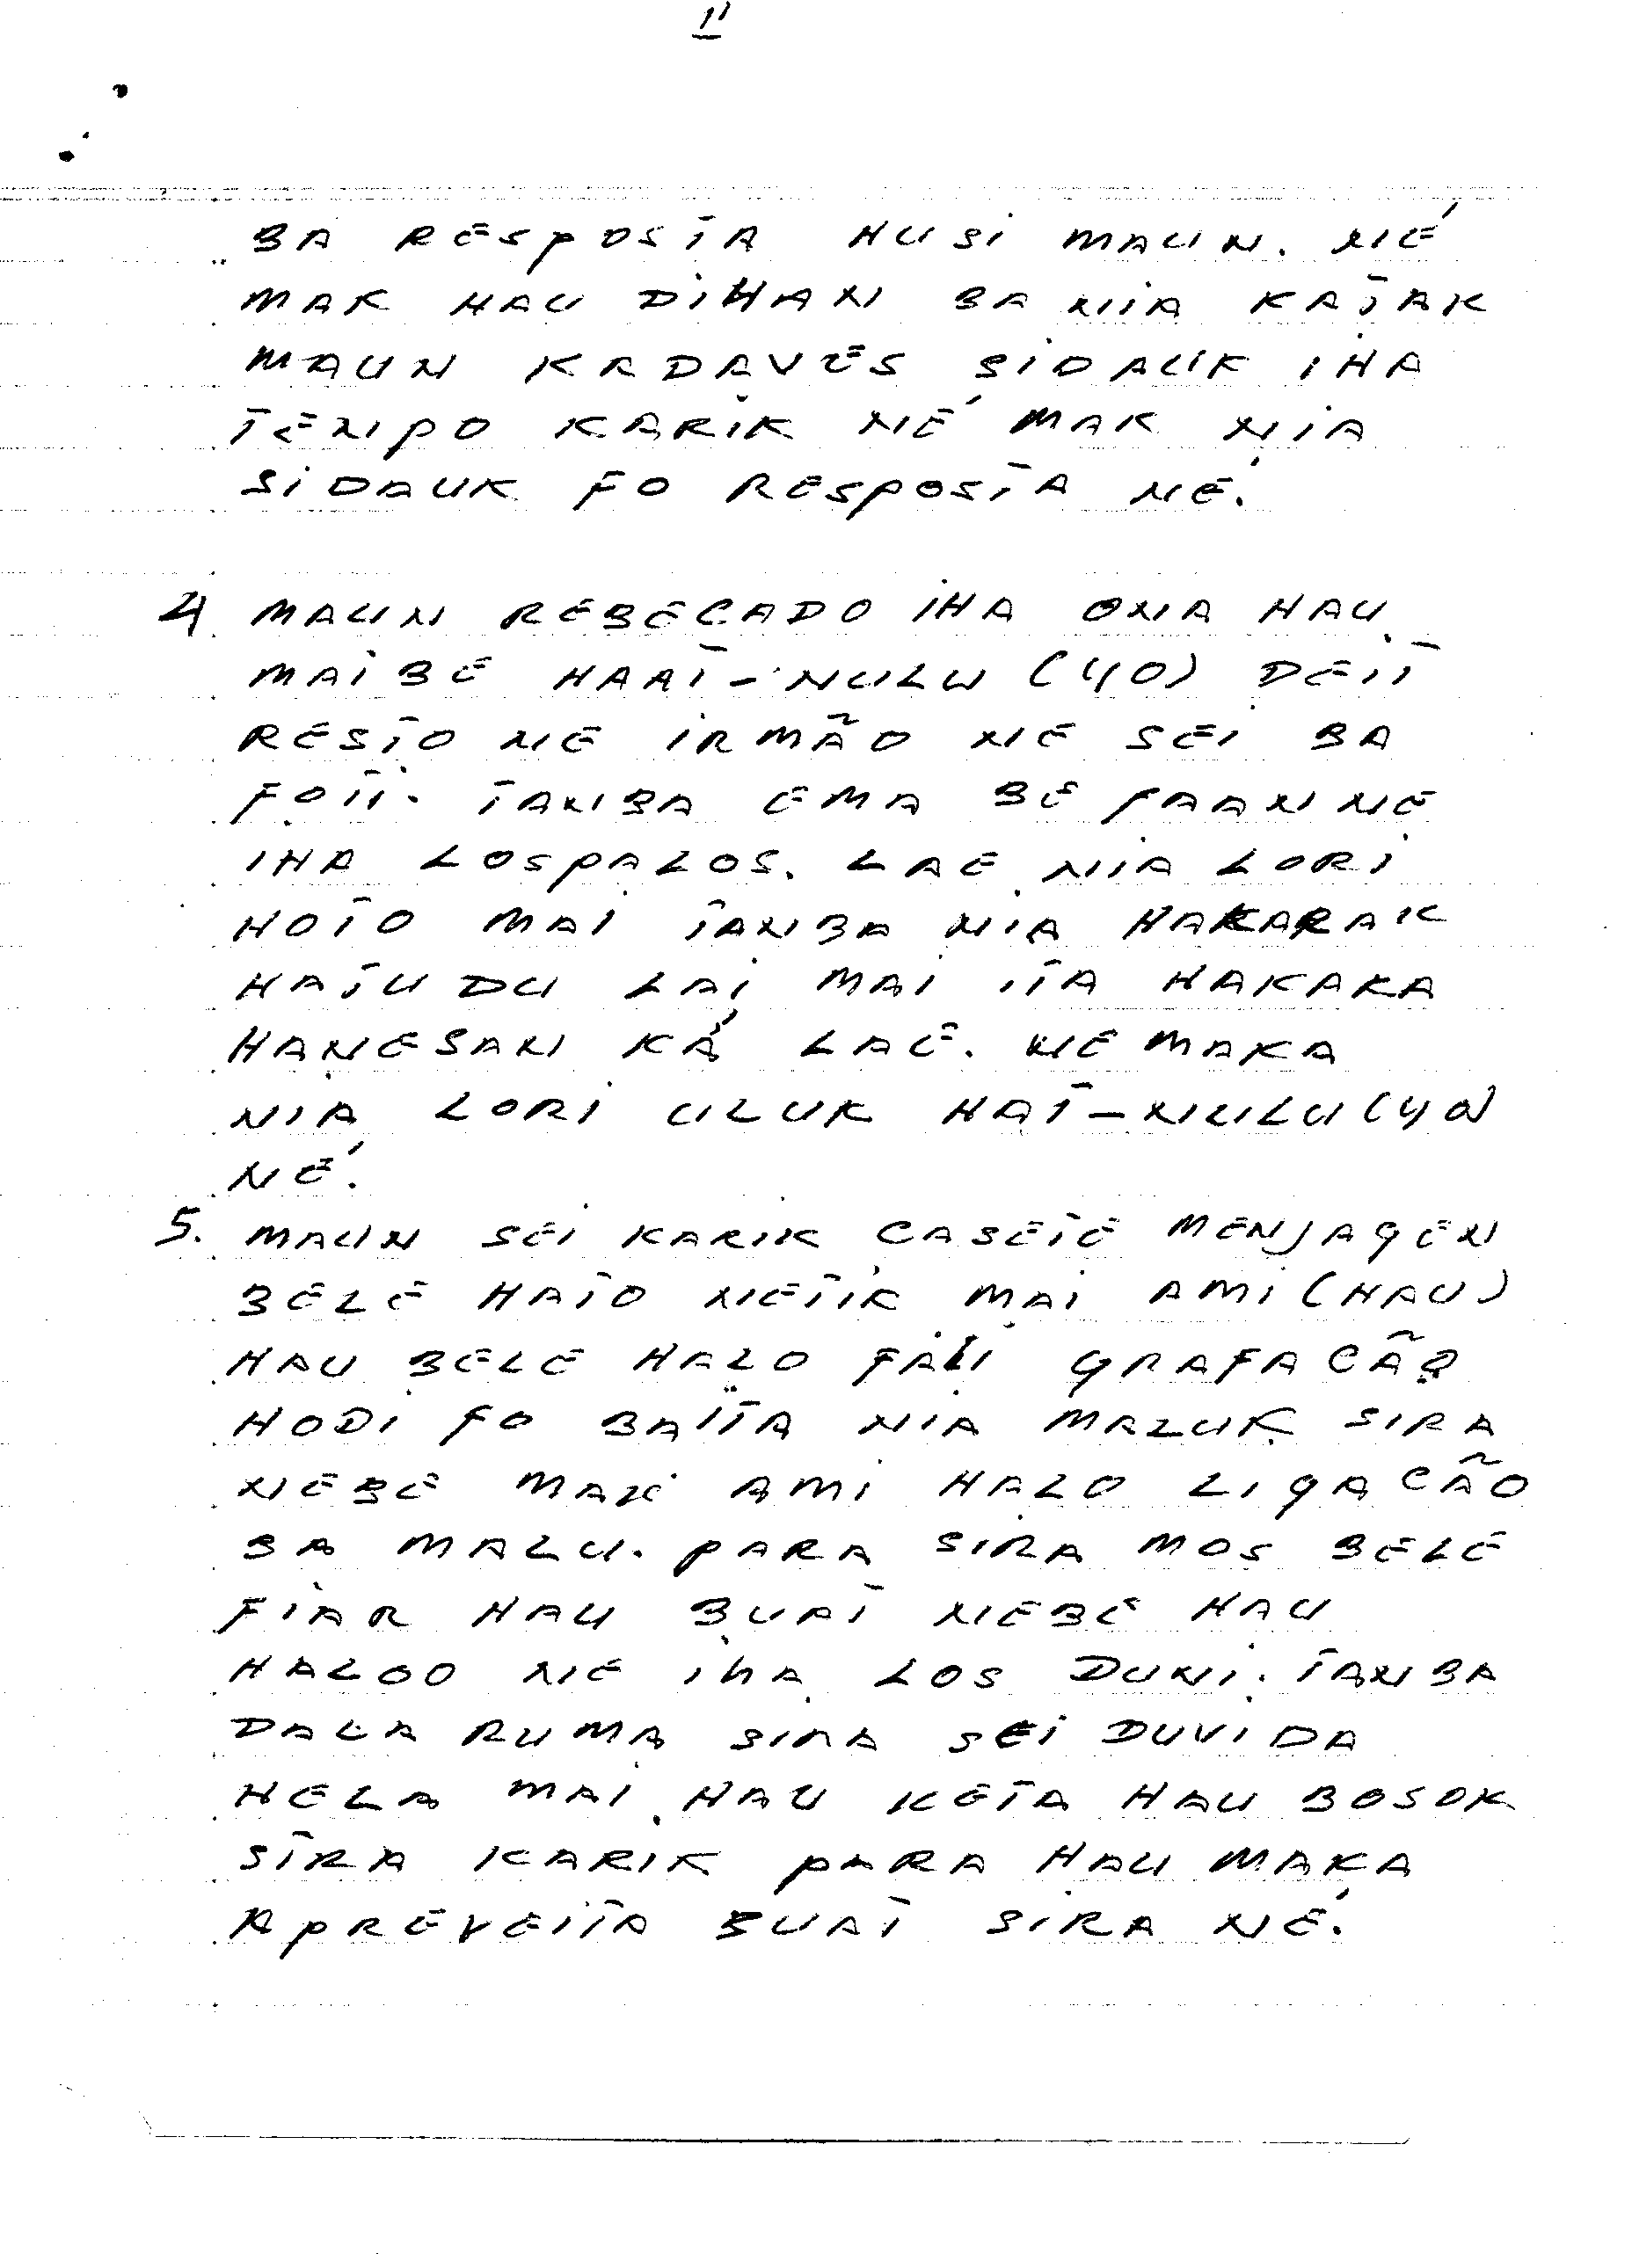 11
BA RESPOSTA HUSI MAUN. NÉ
MAK HAU DIHAN BA NIA KATAK
MAUN KADAVES SIDAUK IHA
TEMPO KARIK NÉ MAK NIA
SIDAUK FO RESPOSTA NÉ.
4 MAUN REBECADO IHA ONA HAU.
MAIBE HAAT-NULU (40) DEIT
RESTO NE IRMÃO NE SEI BA
FOTI. TANBA EMA BE FAAN NE
IHA LOSPALOS. LAE NIA LORI
HOTO MAI TANBA NIA HAKARAK
HATUDU LAI MAI ITA HAKARA
HANESAN KÁ LAE. NE MAKA
NIA LORI ULUK HAT-NULU (40)
NÉ.
5. MAUN SEI KARIK CASETE MENJAGEN
BELE HATO NETIK MAI AMI (HAU)
HAU BELE HALO FALI GRAFACÃO
HODI FO BAITA NIA MALUK SIRA
NEBE MAK AMI HALO LIGACÃO
BA MALU. PARA SIRA MOS BELE
FIAR HAU BUAT NEBE HAU
HALOO NE IHA LOS DUNI. TANBA
DALA RUMA SIRA SEI DUVIDA
HELA MAI HAU KETA HAU BOSOK
SIRA KARIK PARA HAU MAKA
APREVEITA BUAT SIRA NÉ.